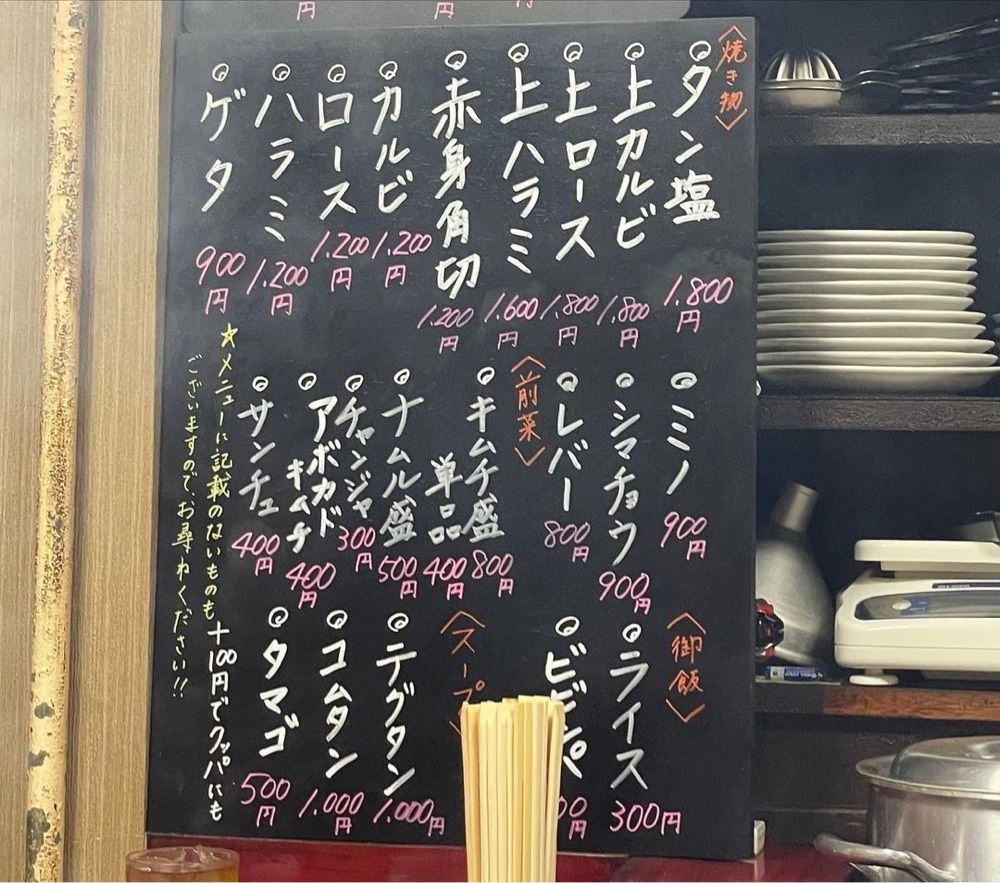 円
円
円
〈焼き物〉
タン塩
1.800円
上カルビ
1.800円
上ロース
1.800円
上ハラミ
1.600円
赤身角切
1.200円
カルビ
1.200円
ロース
1.200円
ハラミ
1.200円
ゲタ
900円
ミノ
900円
シマチョウ
900円
レバー
800円
〈前菜〉
キムチ盛
800円
単品
400円
ナムル盛
500円
チャンジャ
300円
アボカドキムチ
400円
サンチュ
400円
〈御飯〉
ライス
300円
ビビンパ
00円
〈スープ
テグタン
1.000円
コムタン
1.000円
タマゴ
500円
+100円でクッパにも
☆メニューに記載のないものも
ございますので、お尋ねください!!